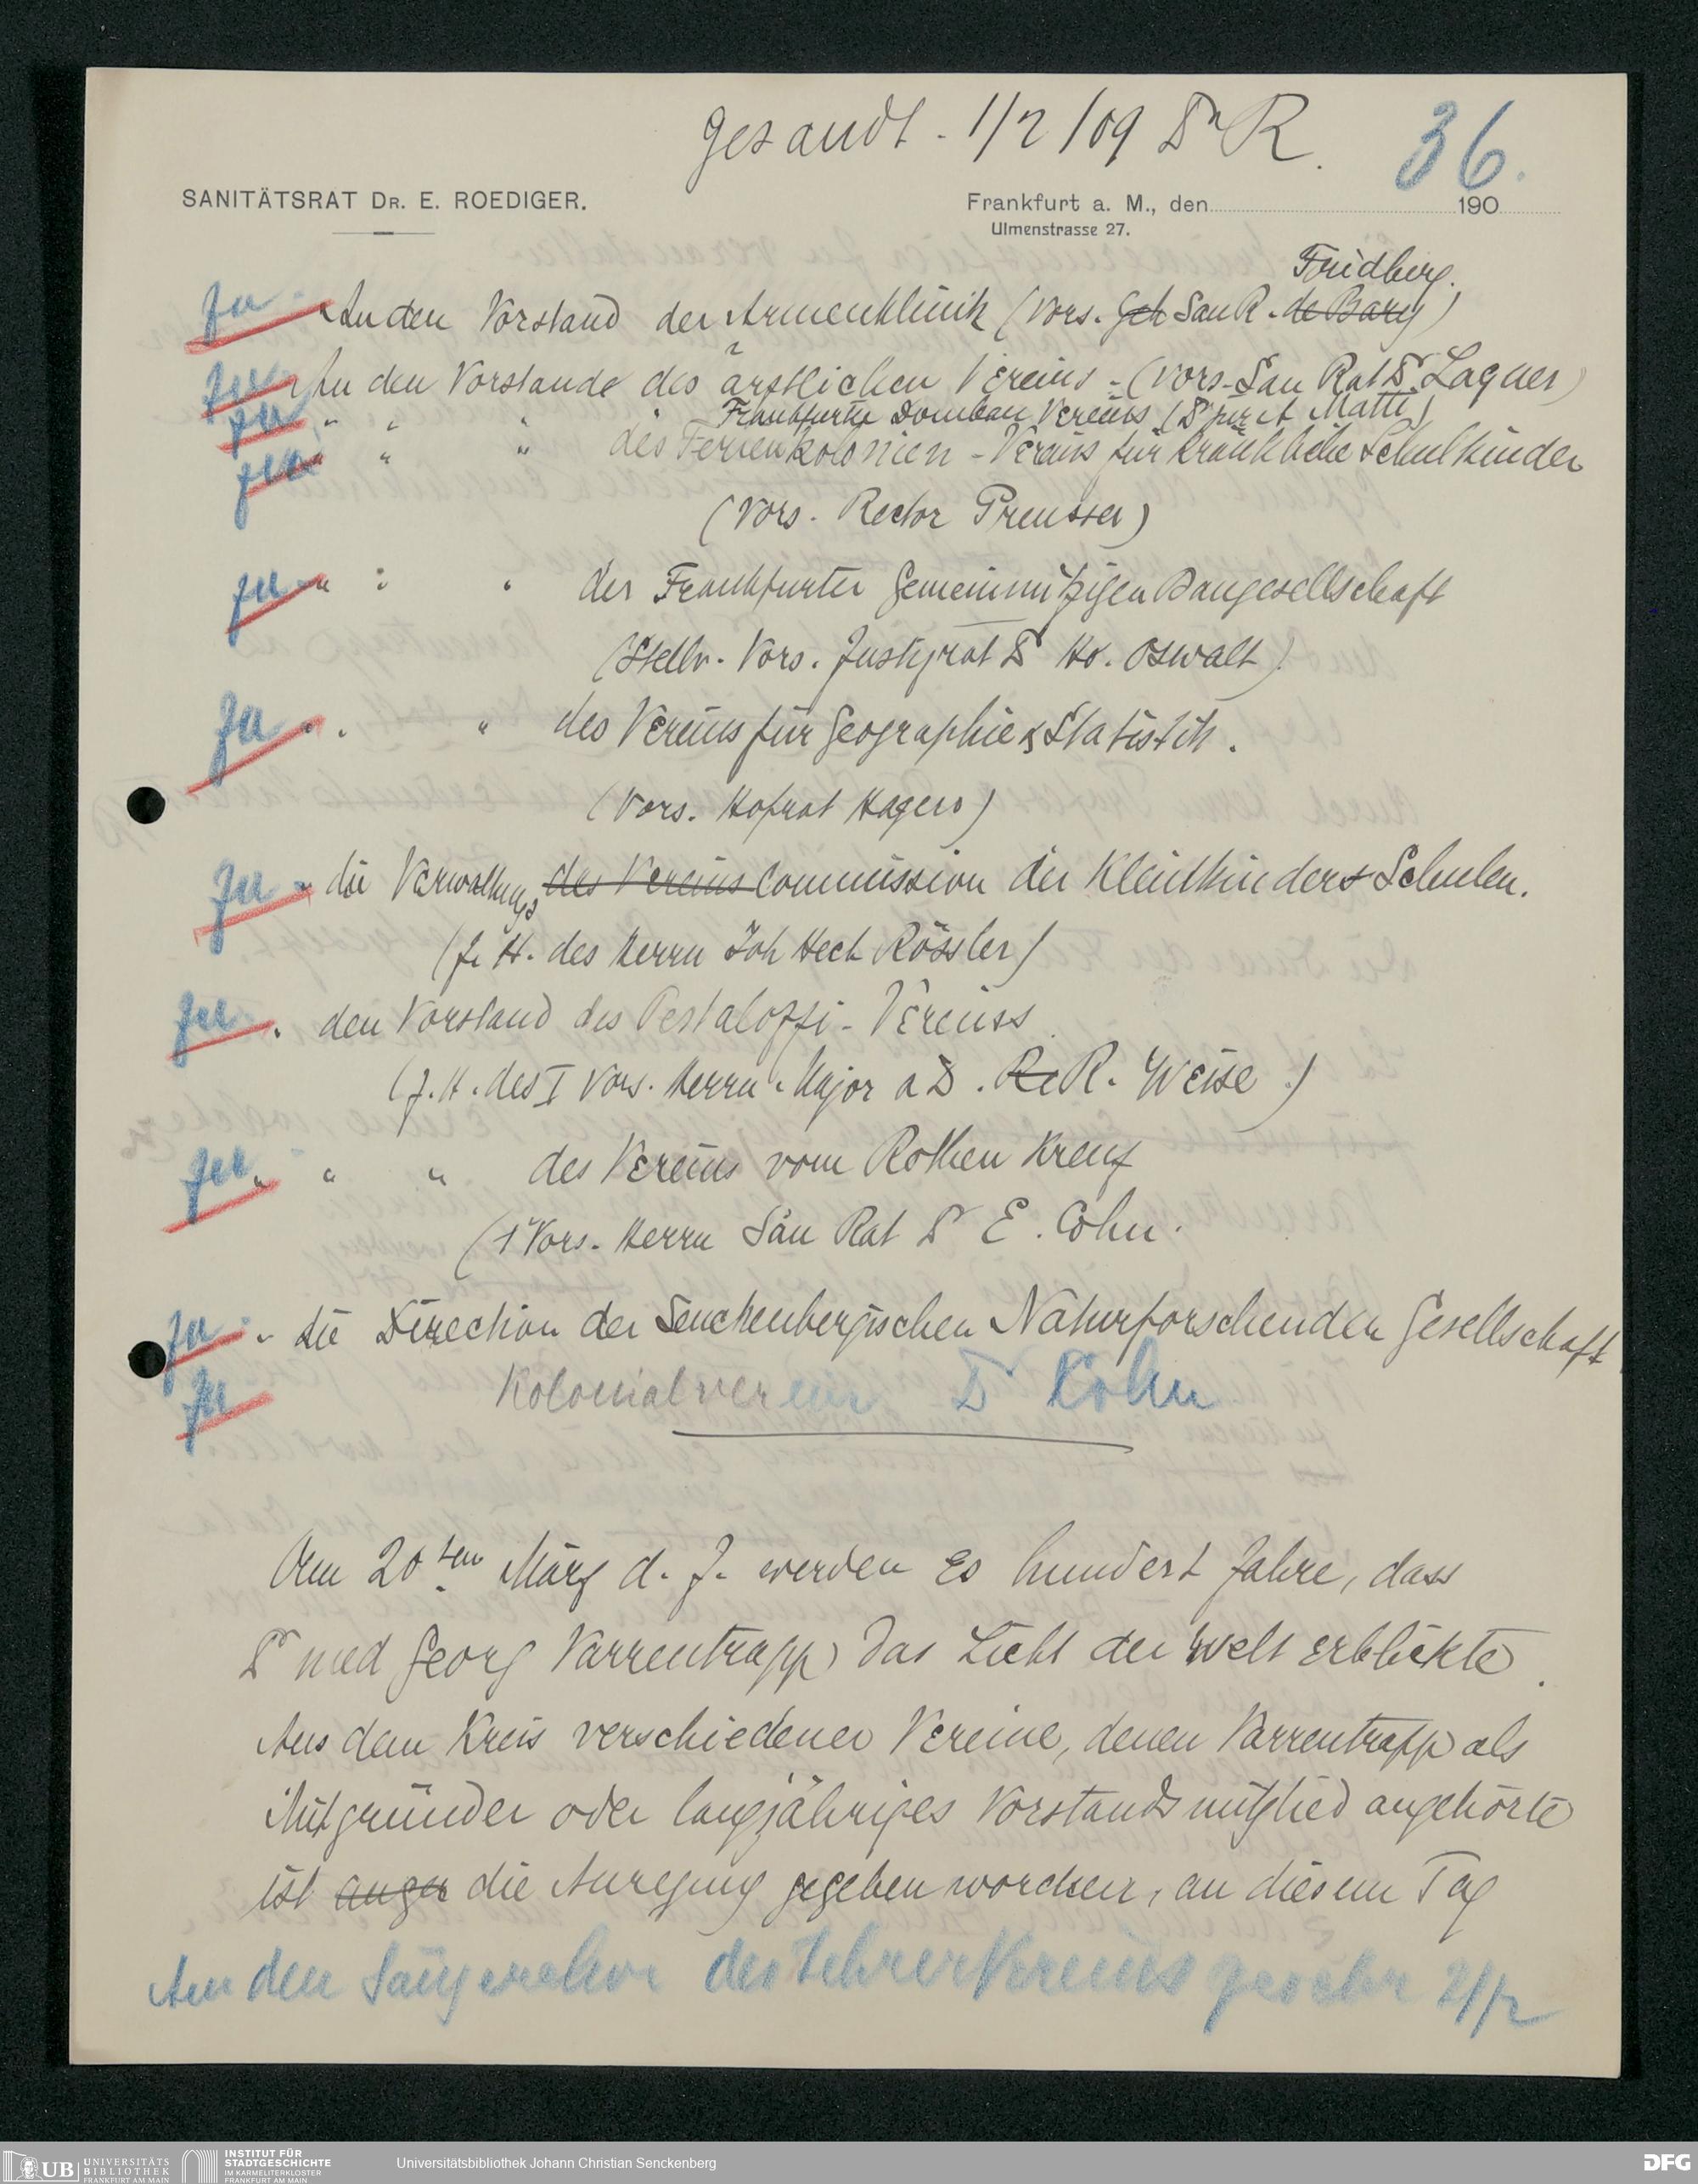 gesandt. 1/2/09 Dr R.
36.
SANITÄTSRAT DR. E. ROEDIGER.
Frankfurt a. M., den 190
Ulmenstrasse 27.
Fridberg.
Ja An den Vorstand der Armenklinik (Vors. Geh San R. de Bary)
Ja An den Vorstande des ärztlichen Vereins - (Vors. San Rat Dr. Laquer)
Ja " " " Frankfurter Dombau Vereins (Dr jur A Matti)
Ja " " " des Ferienkolonien-Vereins für kränkliche Schulkinder
(Vors. Rector Preusser)
Ja " " " der Frankfurter Gemeinnützigen Baugesellschaft
(Stellv. Vors. Justizrat Dr Ho. Oswalt)
Ja " " " des Vereins für Geographie & Statistik.
(Vors. Hofrat Hagen)
Ja " die Verwaltungs des Vereins Commission der Kleinkinder Schulen.
(z. H. des Herrn Joh Hech Rössler)
Ja " den Vorstand des Pestalozzi-Vereins
(z. H. des I Vors. Herrn Major a D. Re R. Weise)
Ja " " " des Vereins vom Rothen Kreuz
(1 Vors. Herrn San Rat Dr E. Cohn.
Ja " die Direction der Senckenbergischen Naturforschenden Gesellschaft
Ja Kolonialverein Dr Kohn
Am 20ten März d. J. werden es hundert Jahre, dass
Dr med Georg Varrentrapp das Licht der Welt erblickte.
Aus dem Kreis verschiedener Vereine, denen Varrentrapp als
Mitgründer oder langjähriges Vorstandsmitglied angehörte
ist anger die Anregung gegeben worden, an diesem Tag
An den Sängerchor des Lehrervereins geschr 2/2
UB UNIVERSITÄTS
BIBLIOTHEK
FRANKFURT AM MAIN
INSTITUT FÜR
STADTGESCHICHTE
IM KARMELITERKLOSTER
FRANKFURT AM MAIN
Universitätsbibliothek Johann Christian Senckenberg
DFG